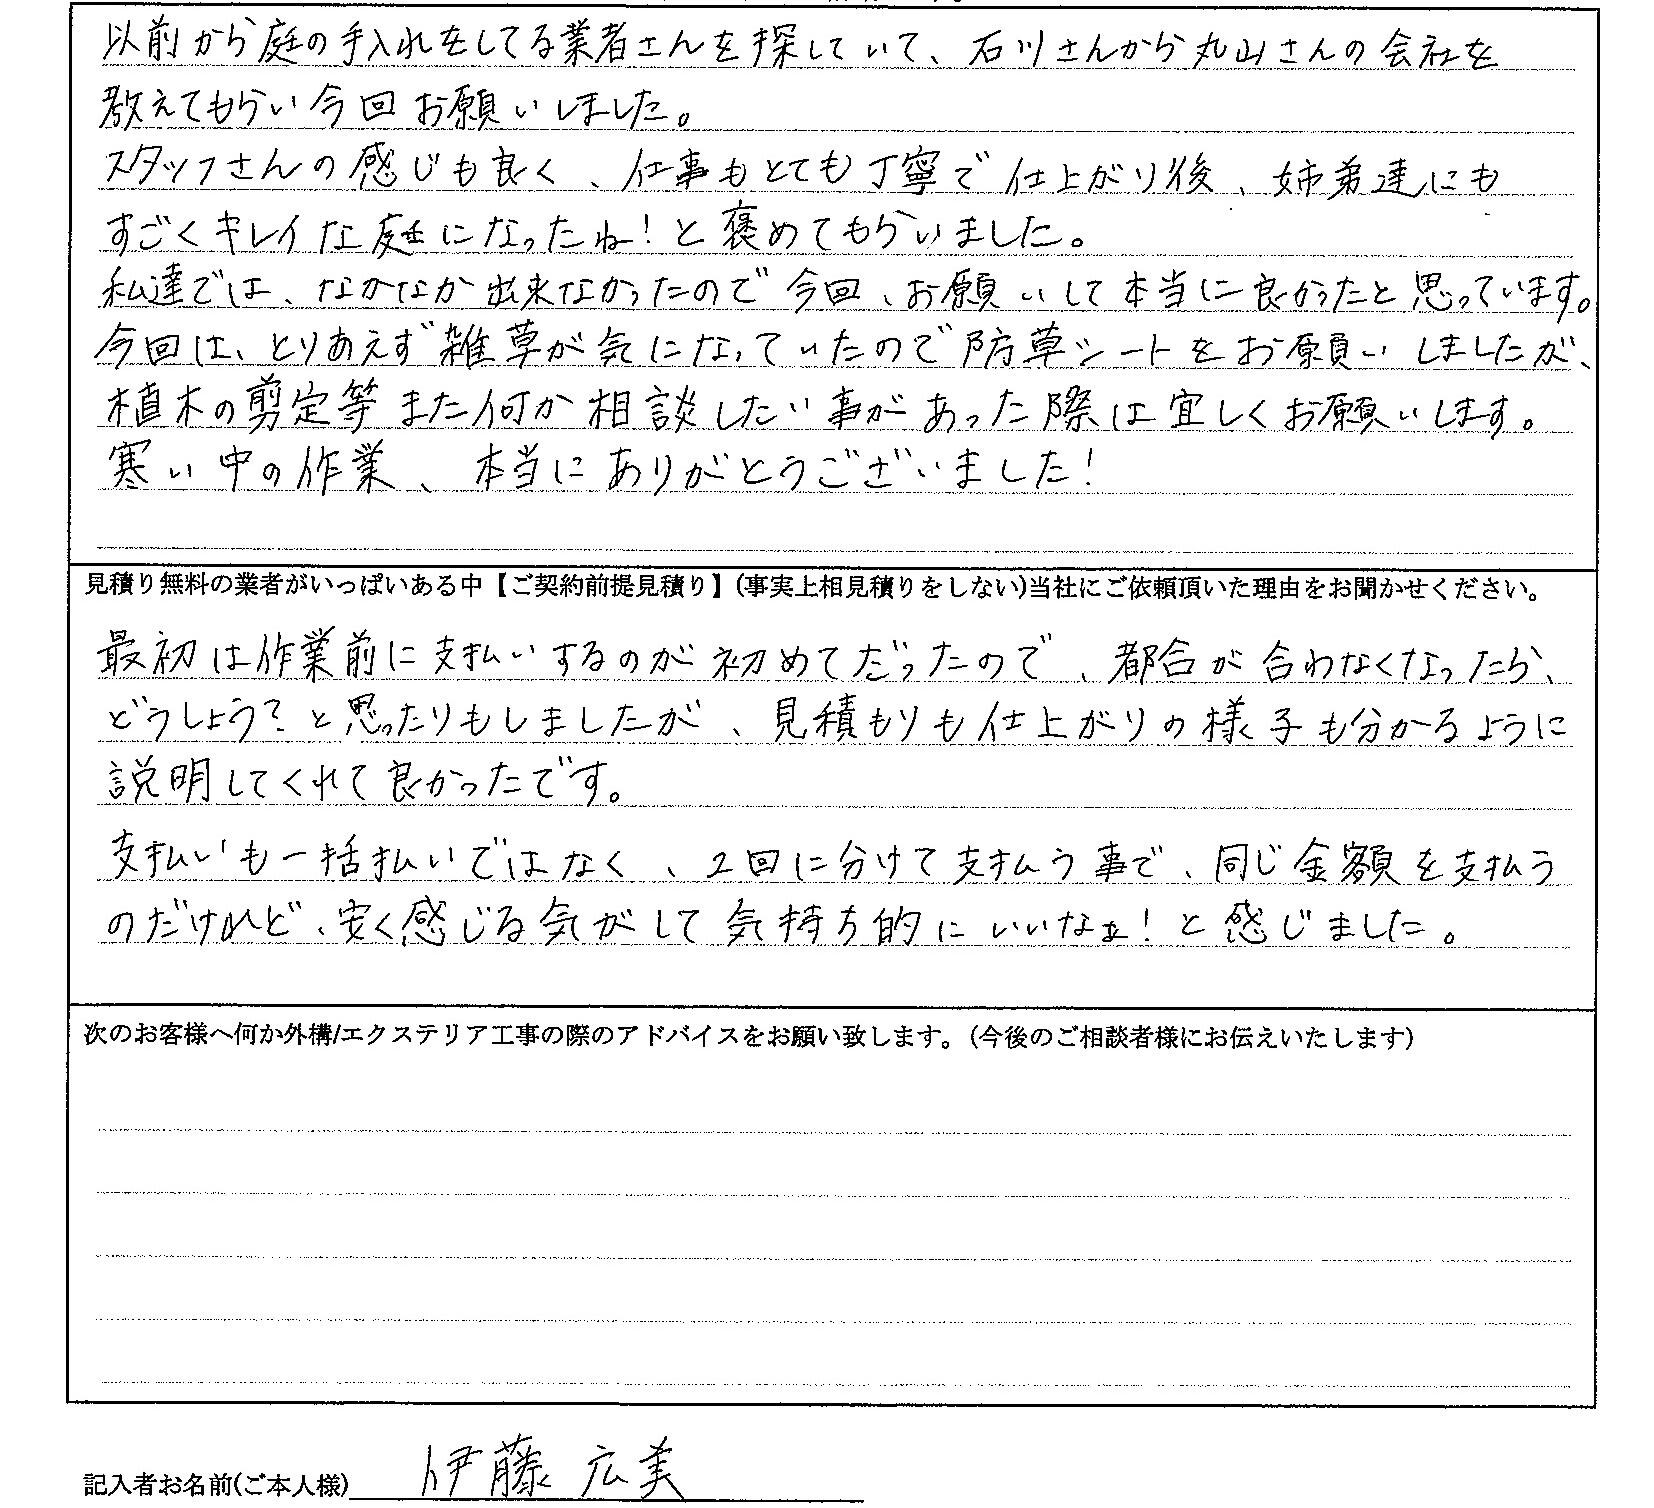 以前から庭の手入れをしてる業者さんを探していて、石川さんから丸山さんの会社を
教えてもらい今回お願いしました。
スタッフさんの感じも良く、仕事もとても丁寧で仕上がり後、姉弟達にも
すごくキレイな庭になったね!と褒めてもらいました。
私達では、なかなか出来なかったので今回、お願いして本当に良かったと思っています。
今回は、とりあえず雑草が気になっていたので防草シートをお願いしましたが、
植木の剪定等また何か相談したい事があった際は宜しくお願いします。
寒い中の作業、本当にありがとうございました!
見積り無料の業者がいっぱいある中【ご契約前提見積り】(事実上相見積りをしない)当社にご依頼頂いた理由をお聞かせください。
最初は作業前に支払いするのが初めてだったので、都合が合わなくなったら、
どうしよう?と思ったりもしましたが、見積もりも仕上がりの様子も分かるように
説明してくれて良かったです。
支払いも一括払いではなく、2回に分けて支払う事で、同じ金額を支払う
のだけれど、安く感じる気がして気持ち的にいいなぁ!と感じました。
次のお客様へ何か外構/エクステリア工事の際のアドバイスをお願い致します。(今後のご相談者様にお伝えいたします)
記入者お名前(ご本人様) 伊藤 広美